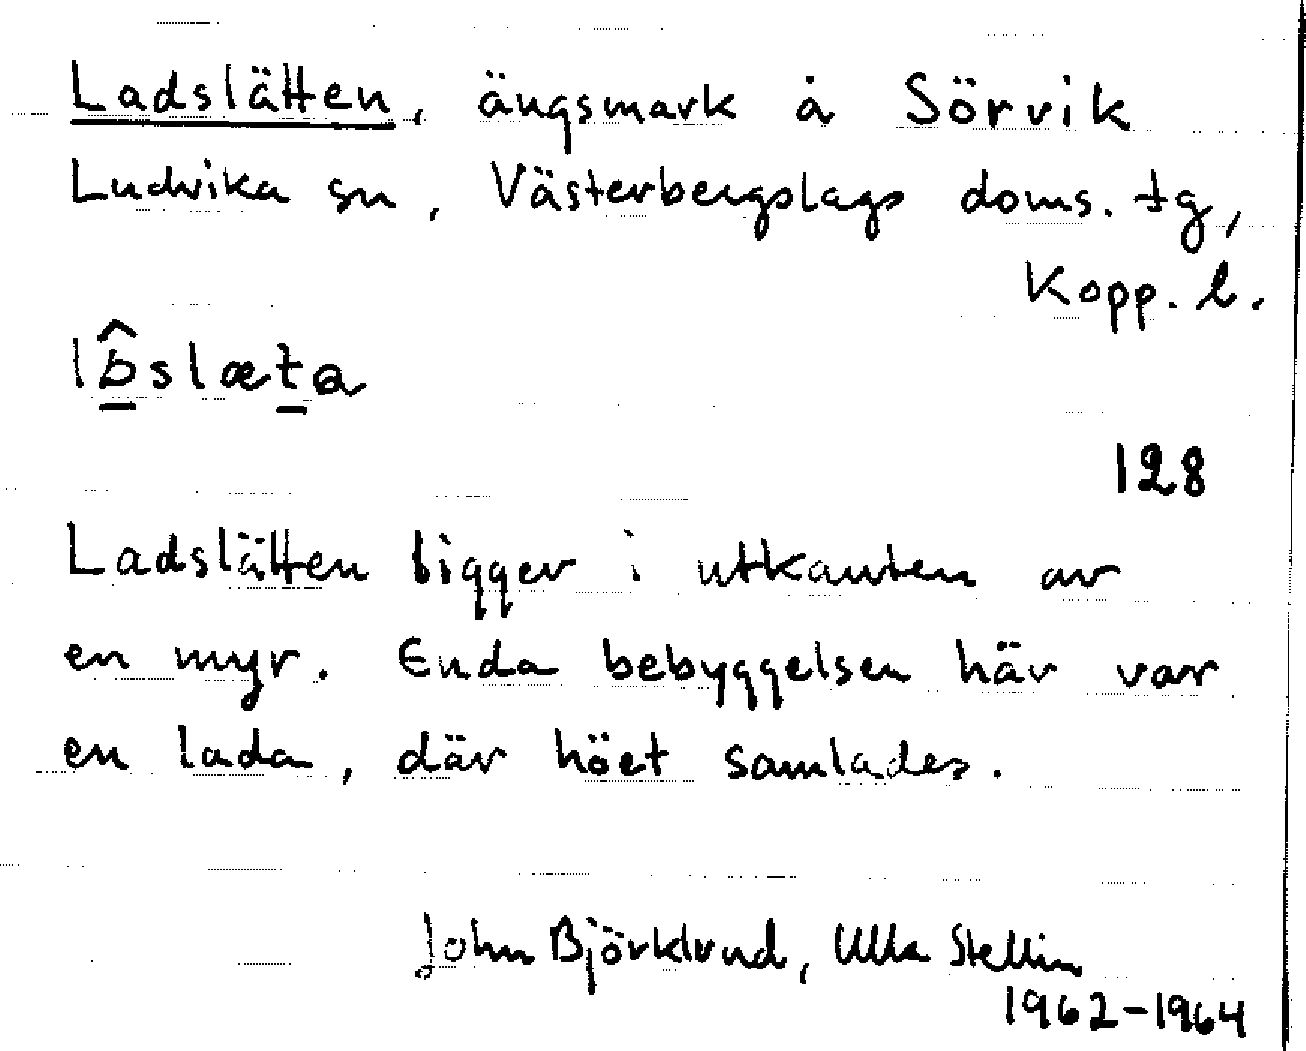 Ladslätten, ängsmark å Sörvik
Ludvika sn, Västerbergslags doms. tg,
Kopp. l.
lô̱slæṯa
128
Ladslätten ligger i utkanten av
en myr. Enda bebyggelsen här var
en lada, där höet samlades.
John Björklund, Ulla Stellin
1962-1964